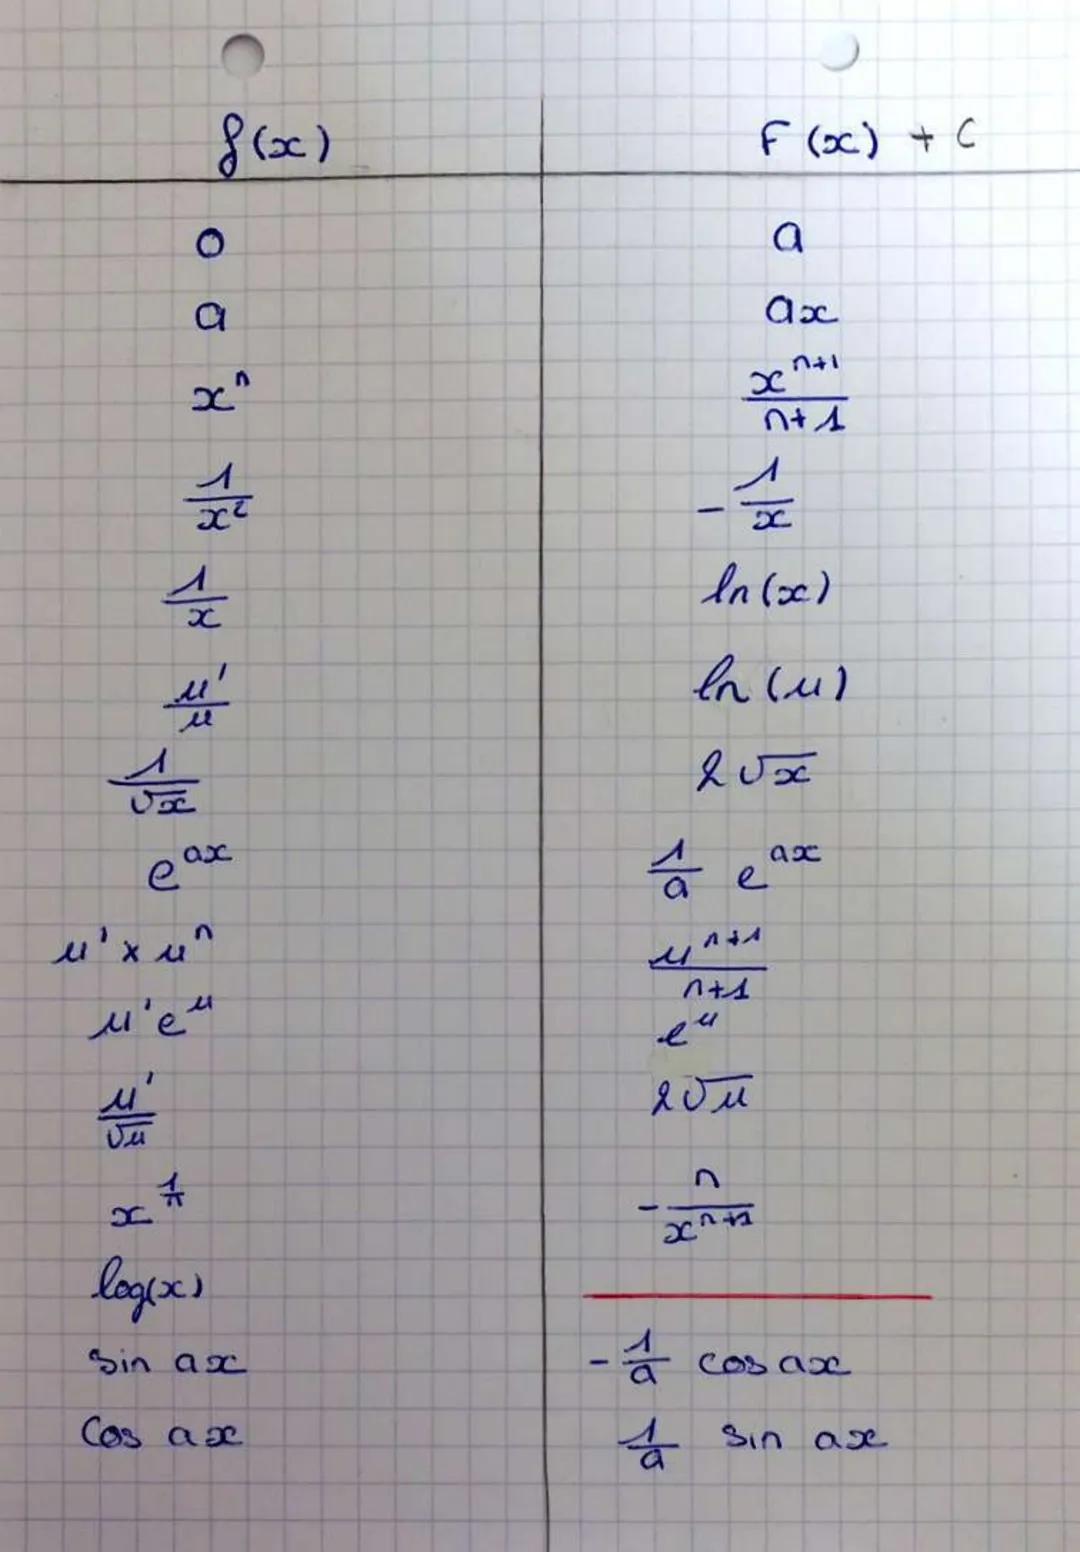 f(x) F(x) + C
0 a
a ax
xⁿ xⁿ⁺¹/n+1
1/x² -1/x
1/x ln(x)
u'/u ln(u)
1/√x 2√x
e^ax 1/a e^ax
u' × uⁿ uⁿ⁺¹/n+1
u'e^u e^u
u'/√u 2√u
x^1/n -n/xⁿ⁺¹
log(x)
sin ax -1/a cos ax
cos ax 1/a sin ax